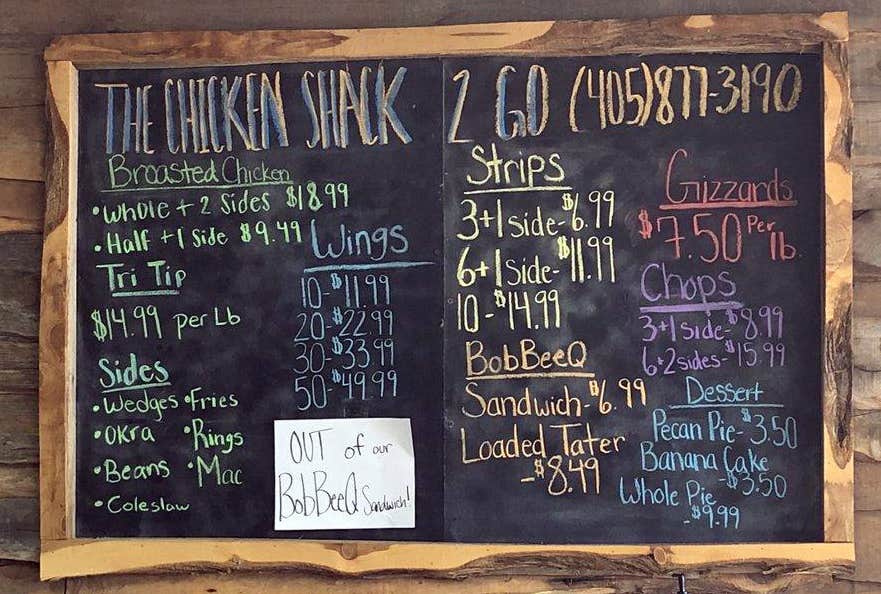 THE CHICKEN SHACK 2 GO (405)877-3190
Broasted Chicken
•Whole + 2 Sides $18.99
•Half + 1 Side $9.49
Tri Tip
$14.99 per Lb
Sides
•Wedges •Fries
•Okra •Rings
•Beans •Mac
•Coleslaw
Wings
10-$11.99
20-$22.99
30-$33.99
50-$49.99
OUT of our
BobBeeQ Sandwich!
Strips
3+1 side-$6.99
6+1 Side-$11.99
10-$14.99
BobBeeQ
Sandwich-$6.99
Loaded Tater
-$8.49
Gizzards
$7.50 Per lb.
Chops
3+1 side-$8.99
6+2 sides-$15.99
Dessert
Pecan Pie-$3.50
Banana Cake
-$3.50
Whole Pie
-$9.99